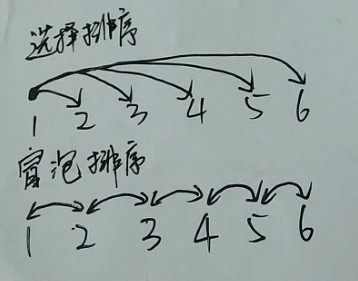 选择排序
1 2 3 4 5 6
冒泡排序
1 2 3 4 5 6